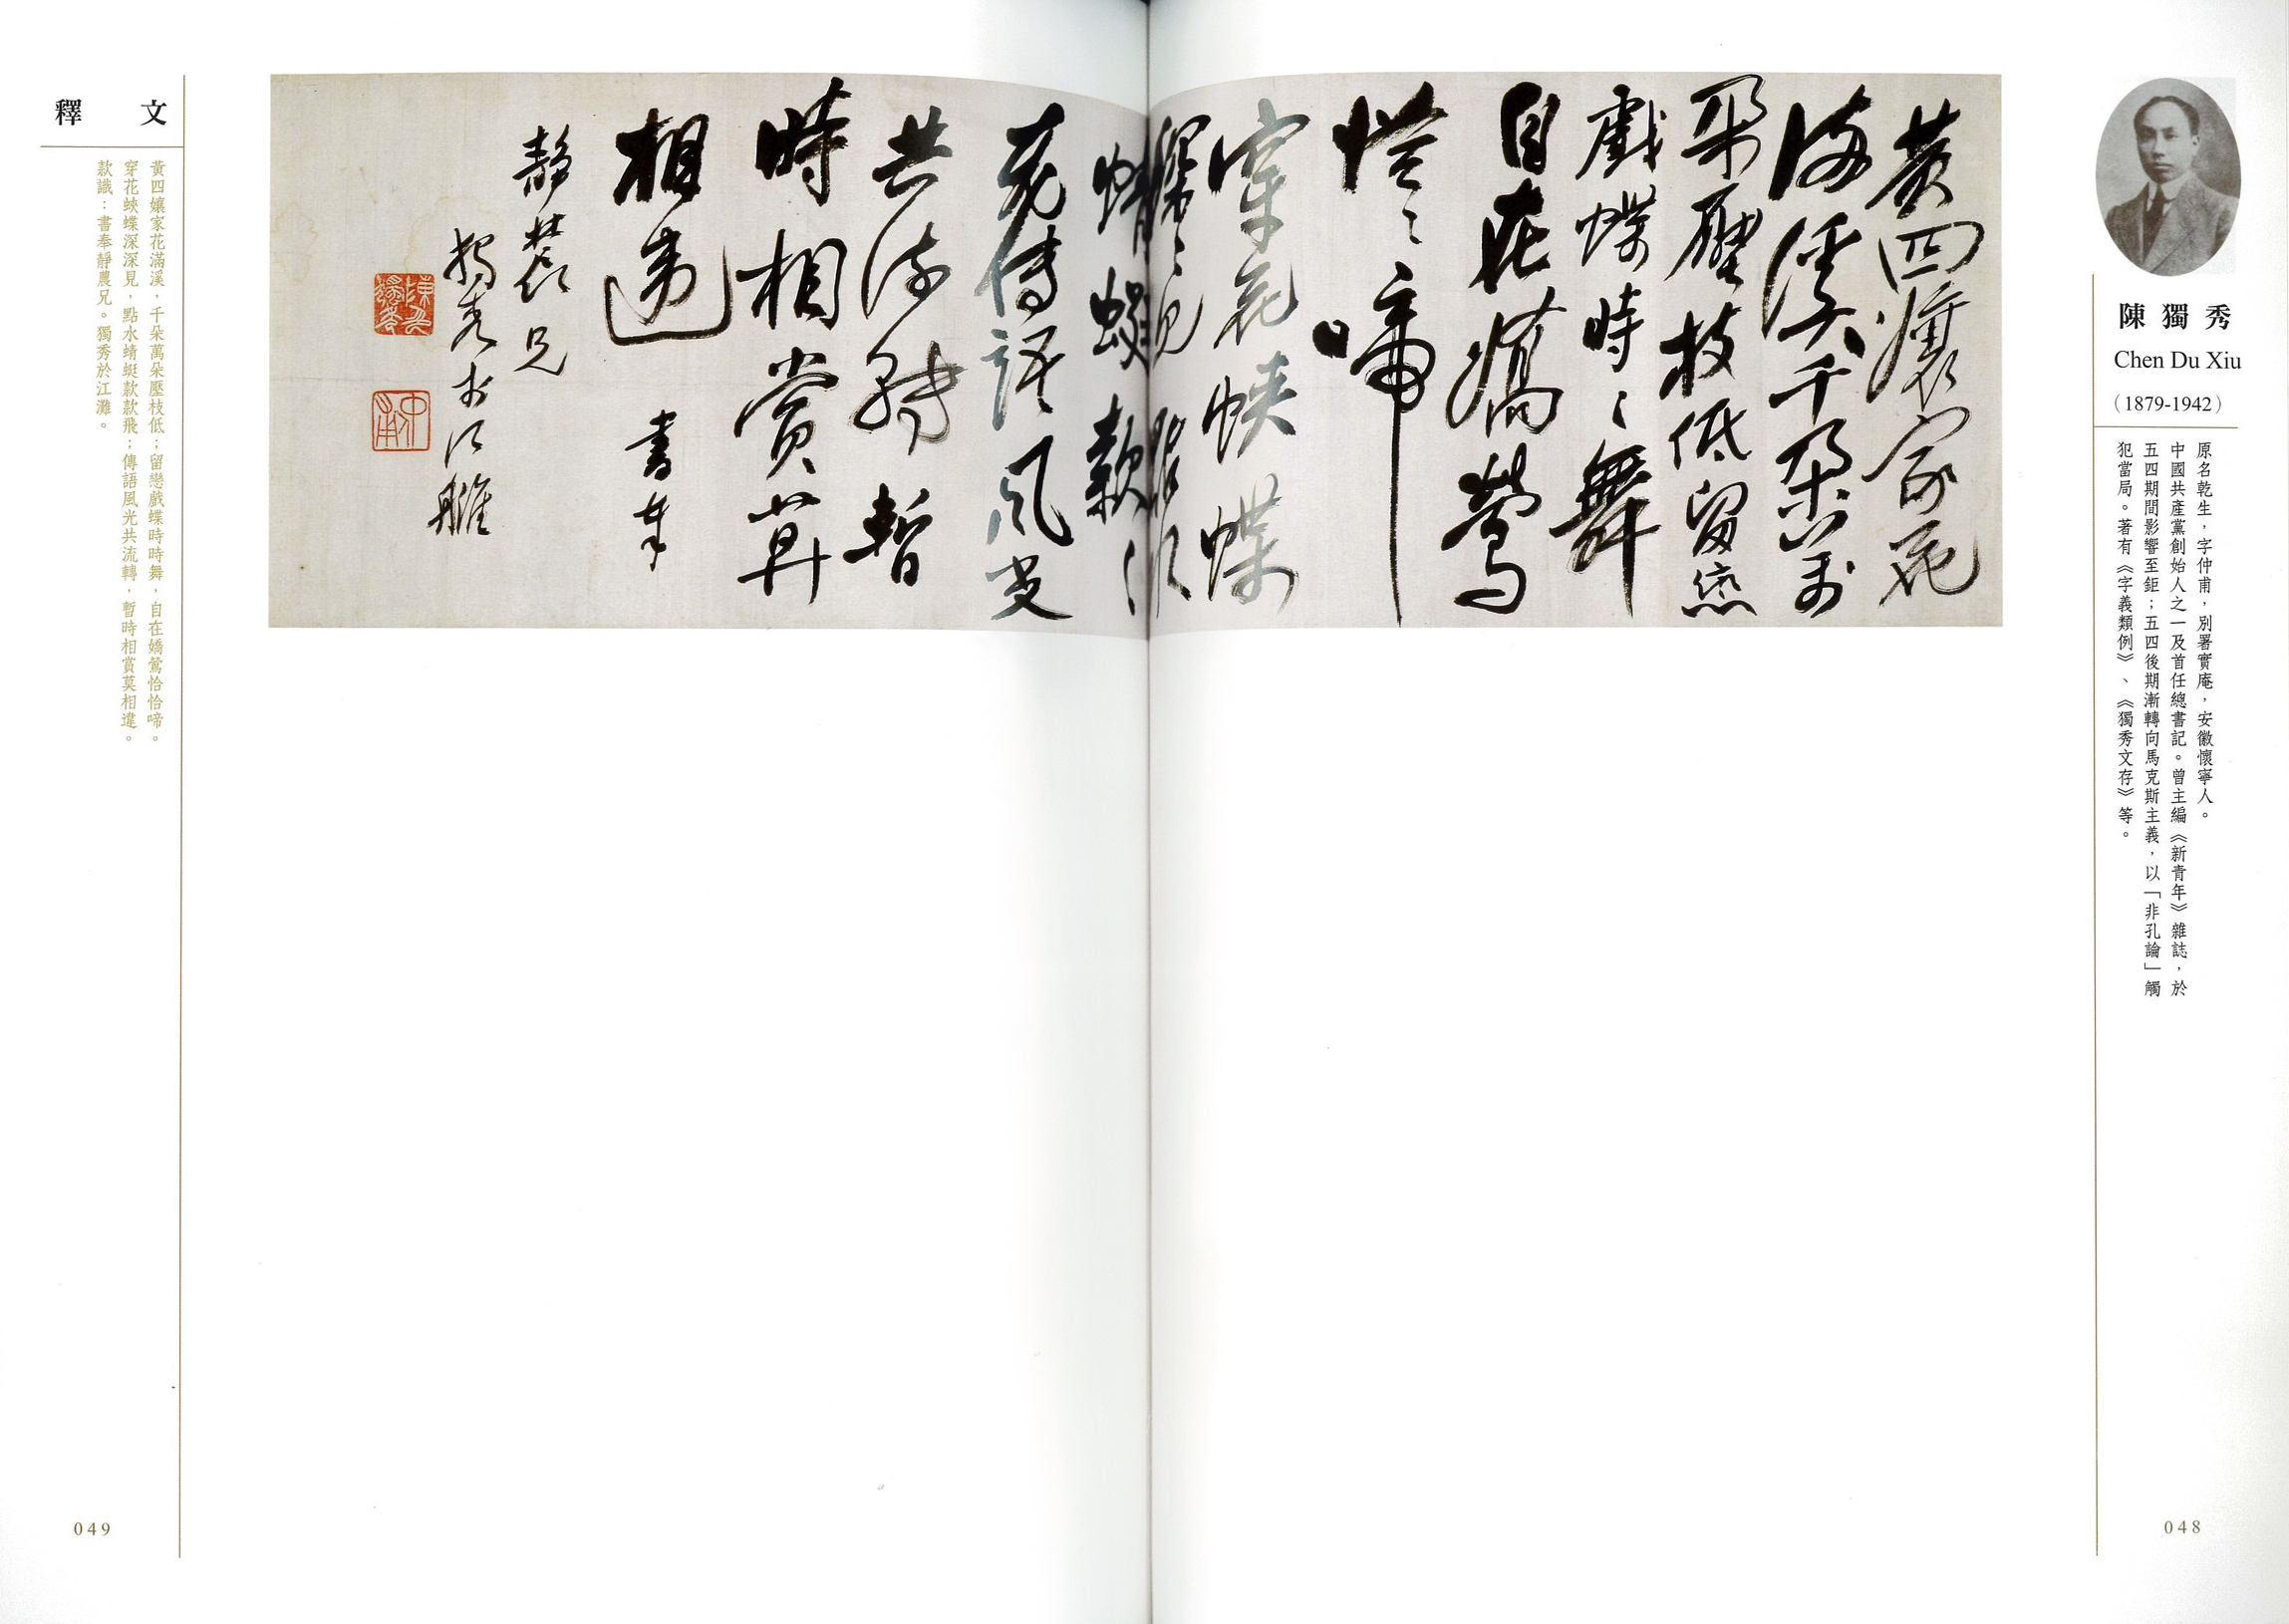 陳獨秀
Chen Du Xiu
(1879-1942)
原名乾生，字仲甫，別署實庵，安徽懷寧人。
中國共產黨創始人之一及首任總書記。曾主編《新青年》雜誌，於
五四期間影響至鉅；五四後期漸轉向馬克斯主義，以「非孔論」觸
犯當局。著有《字義類例》、《獨秀文存》等。
黃四孃家花
滿溪千朵萬
朵壓枝低留戀
戲蝶時〻舞
自在嬌鶯
恰〻啼
穿花蛺蝶
深〻見點水
蜻蜓款〻
飛傳語風光
共流轉暫
時相賞莫
相違 書奉
靜農兄
獨秀於江灘
仲甫
釋文
黃四孃家花滿溪，千朵萬朵壓枝低；留戀戲蝶時時舞，自在嬌鶯恰恰啼。
穿花蛺蝶深深見，點水蜻蜓款款飛；傳語風光共流轉，暫時相賞莫相違。
款識：書奉靜農兄。獨秀於江灘。
048
049